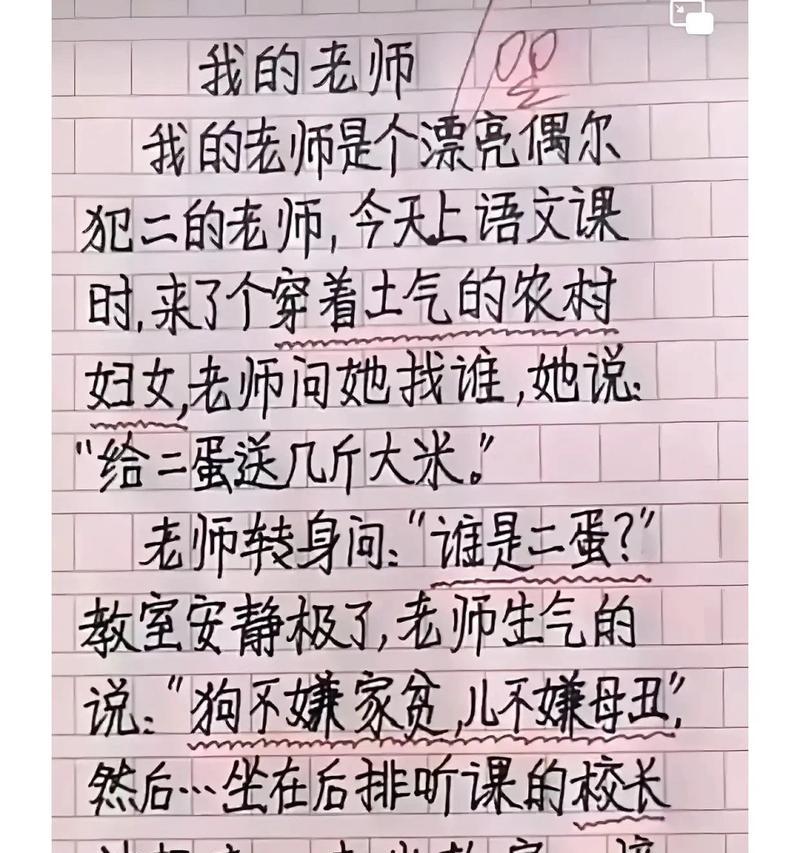 我的老师
我的老师是个漂亮偶尔
犯二的老师,今天上语文课
时,来了个穿着土气的农村
妇女,老师问她找谁,她说:
“给二蛋送几斤大米。”
老师转身问:“谁是二蛋?”
教室安静极了,老师生气的
说:“狗不嫌家贫,儿不嫌母丑”,
然后…坐在后排听课的校长